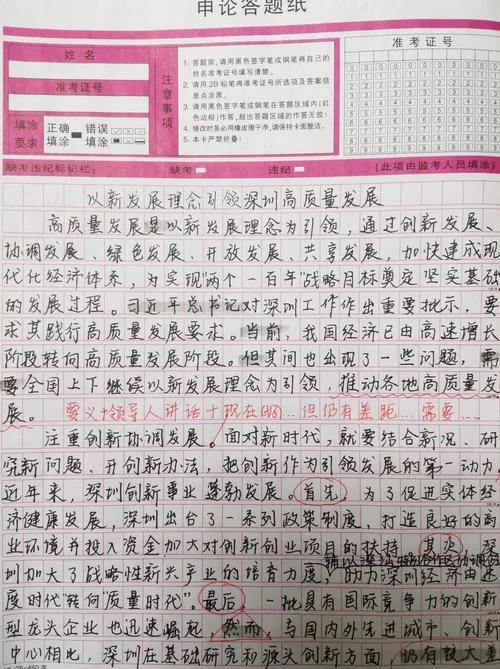 申论答题纸
姓名
准考证号
填涂要求
正确
错误
注意事项
1. 答题前，请用黑色签字笔或钢笔将自己的姓名准考证号填写清楚。
2. 请用2B铅笔将准考证号所选项及答案信息点涂黑。
3. 请用黑色签字笔或钢笔在答题区域内(红色边框)作答，超出答题区域的作答无效!
4. 修改时务必用橡皮擦干净，请保持卡面整洁。
5. 本卡严禁折叠!
准考证号
缺考违纪标记栏:
缺考
违纪
(此项由监考人员填涂)
以新发展理念引领深圳高质量发展
高质量发展是以新发展理念为引领，通过创新发展、
协调发展、绿色发展、开放发展、共享发展，加快建成现
代化经济体系，为实现"两个一百年"战略目标奠定坚实基础
的发展过程。习近平总书记对深圳工作作出重要批示，要
求其践行高质量发展要求。当前，我国经济已由高速增长
阶段转向高质量发展阶段。但其间也出现了一些问题，需
要全国上下继续以新发展理念为引领，推动各地高质量发
展。
要义+领导人讲话+现在 但仍有差距… 需要…
注重创新协调发展。面对新时代，就要结合新况、研
究新问题、开创新办法，把创新作为引领发展的第一动力
近年来，深圳创新事业蓬勃发展。首先，为了促进实体经
济健康发展，深圳出台了一系列政策制度，打造良好的商
业环境并投入资金加大对创新创业项目的扶持。其次，深
圳加大了战略性新兴产业的培育力度，助力深圳经济由速
度时代"转向"质量时代"。最后，一批具有国际竞争力的创新
型龙头企业也迅速崛起，然而，与国内外先进城市、创新
中心相比，深圳在基础研究和源头创新方面仍有较大差